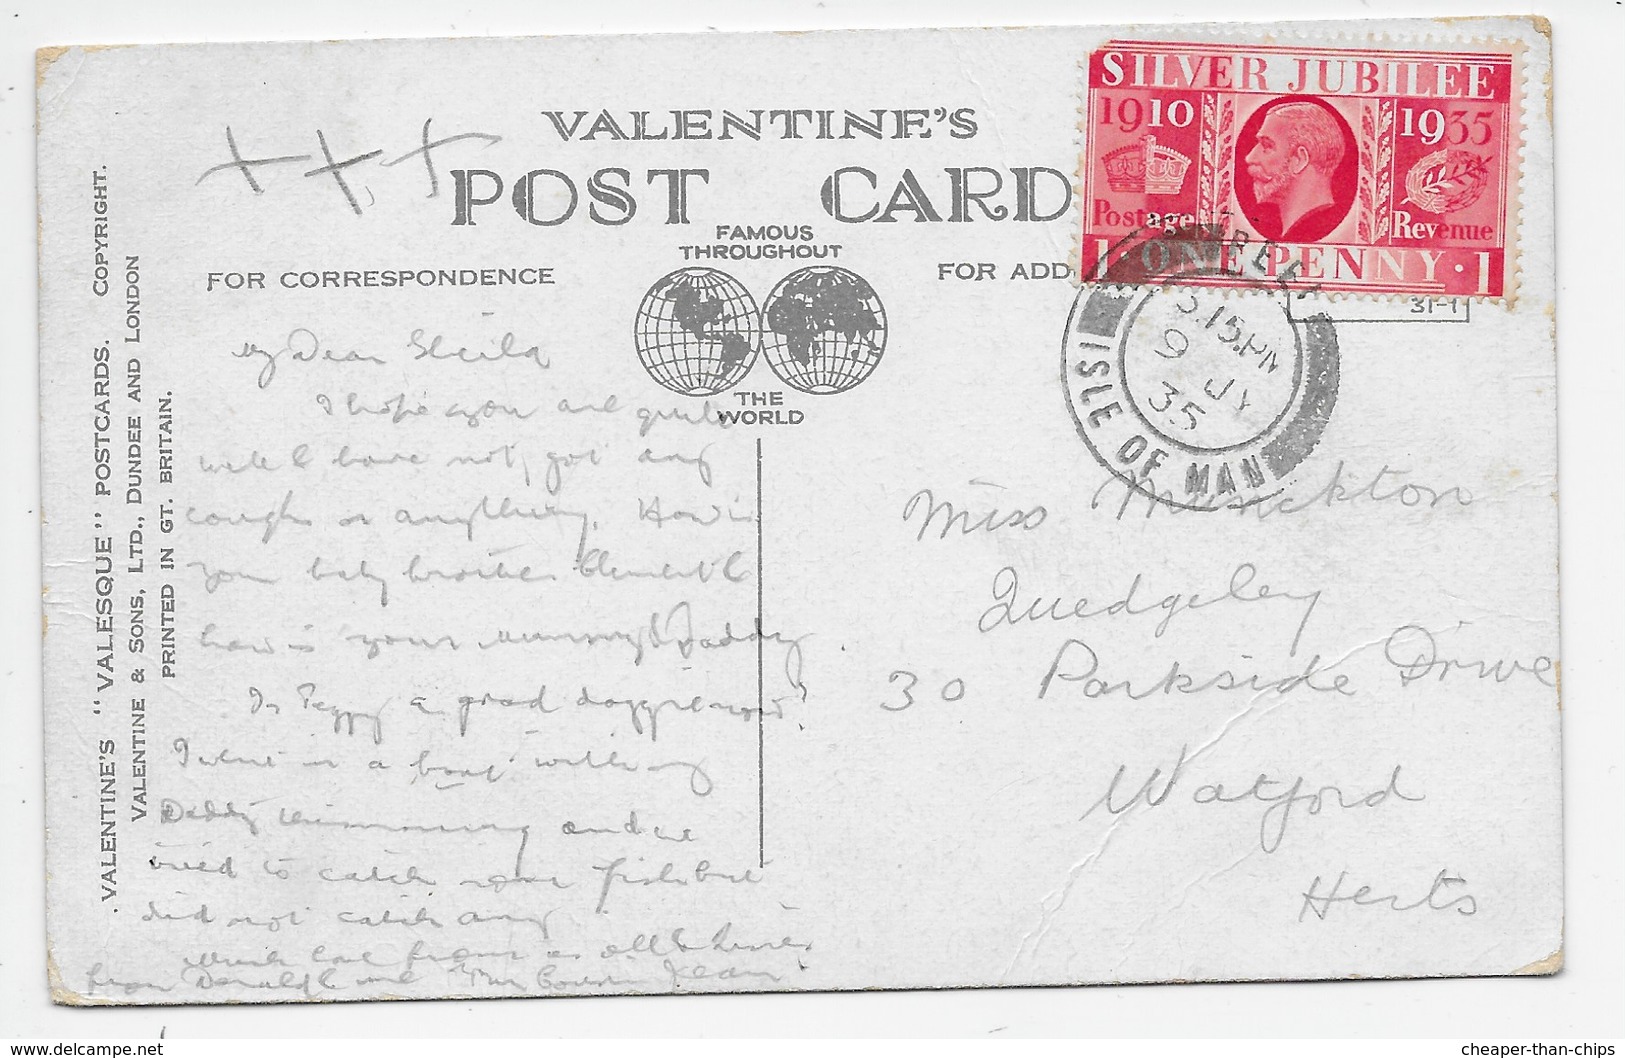 VALENTINE'S
POST CARD
FAMOUS
THROUGHOUT
THE
WORLD
FOR CORRESPONDENCE
FOR ADD
VALENTINE'S "VALESQUE" POSTCARDS. COPYRIGHT.
VALENTINE & SONS, LTD., DUNDEE AND LONDON
PRINTED IN GT. BRITAIN.
SILVER JUBILEE
1910 1935
Postage Revenue
1 ONE PENNY · 1
31-1
5.15 PM
9 JY
35
ISLE OF MAN
+ + +
My Dear Sheila
I hope you are quite
well & have not got any
coughs or anything. How is
your baby brother Clement &
how is your mummy & Daddy
Is Peggy a good doggie now?
I went in a boat with my
Daddy this morning and we
tried to catch some fish but
did not catch any
Much love from us all & kisses
from Donald & your Cousin Jean
Miss Monckton
Quedgeley
30 Parkside Drive
Watford
Herts
www.delcampe.net
cheaper-than-chips